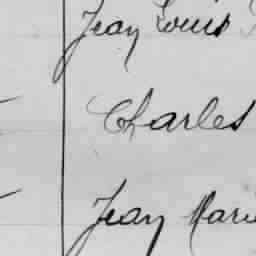 Jean Louis
Charles
Jean Marie